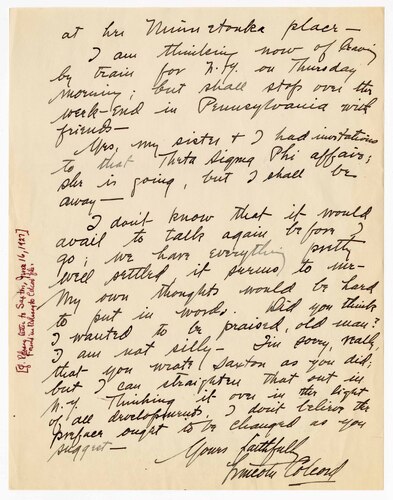 at his Minnetonka place —
I am thinking now of leaving
by train for N.Y. on Thursday
morning; but shall stop over the
week-end in Pennsylvania with
friends —
Yes, my sister & I had invitations
to that Theta Sigma Phi affair;
she is going, but I shall be
away —
I don't know that it would
avail to talk again before I
go; we have everything pretty
well settled it seems to me —
My own thoughts would be hard
to put in words. Did you think
I wanted to be praised, old man?
I am not silly — I'm sorry, really,
that you wrote Saxton as you did;
but I can straighten that out in
N.Y. Thinking it over in the light
of all developments, I don't believe the
preface ought to be changed as you
suggest —
Yours faithfully
Lincoln Colcord
letter to Saxton, June 16, 1927]